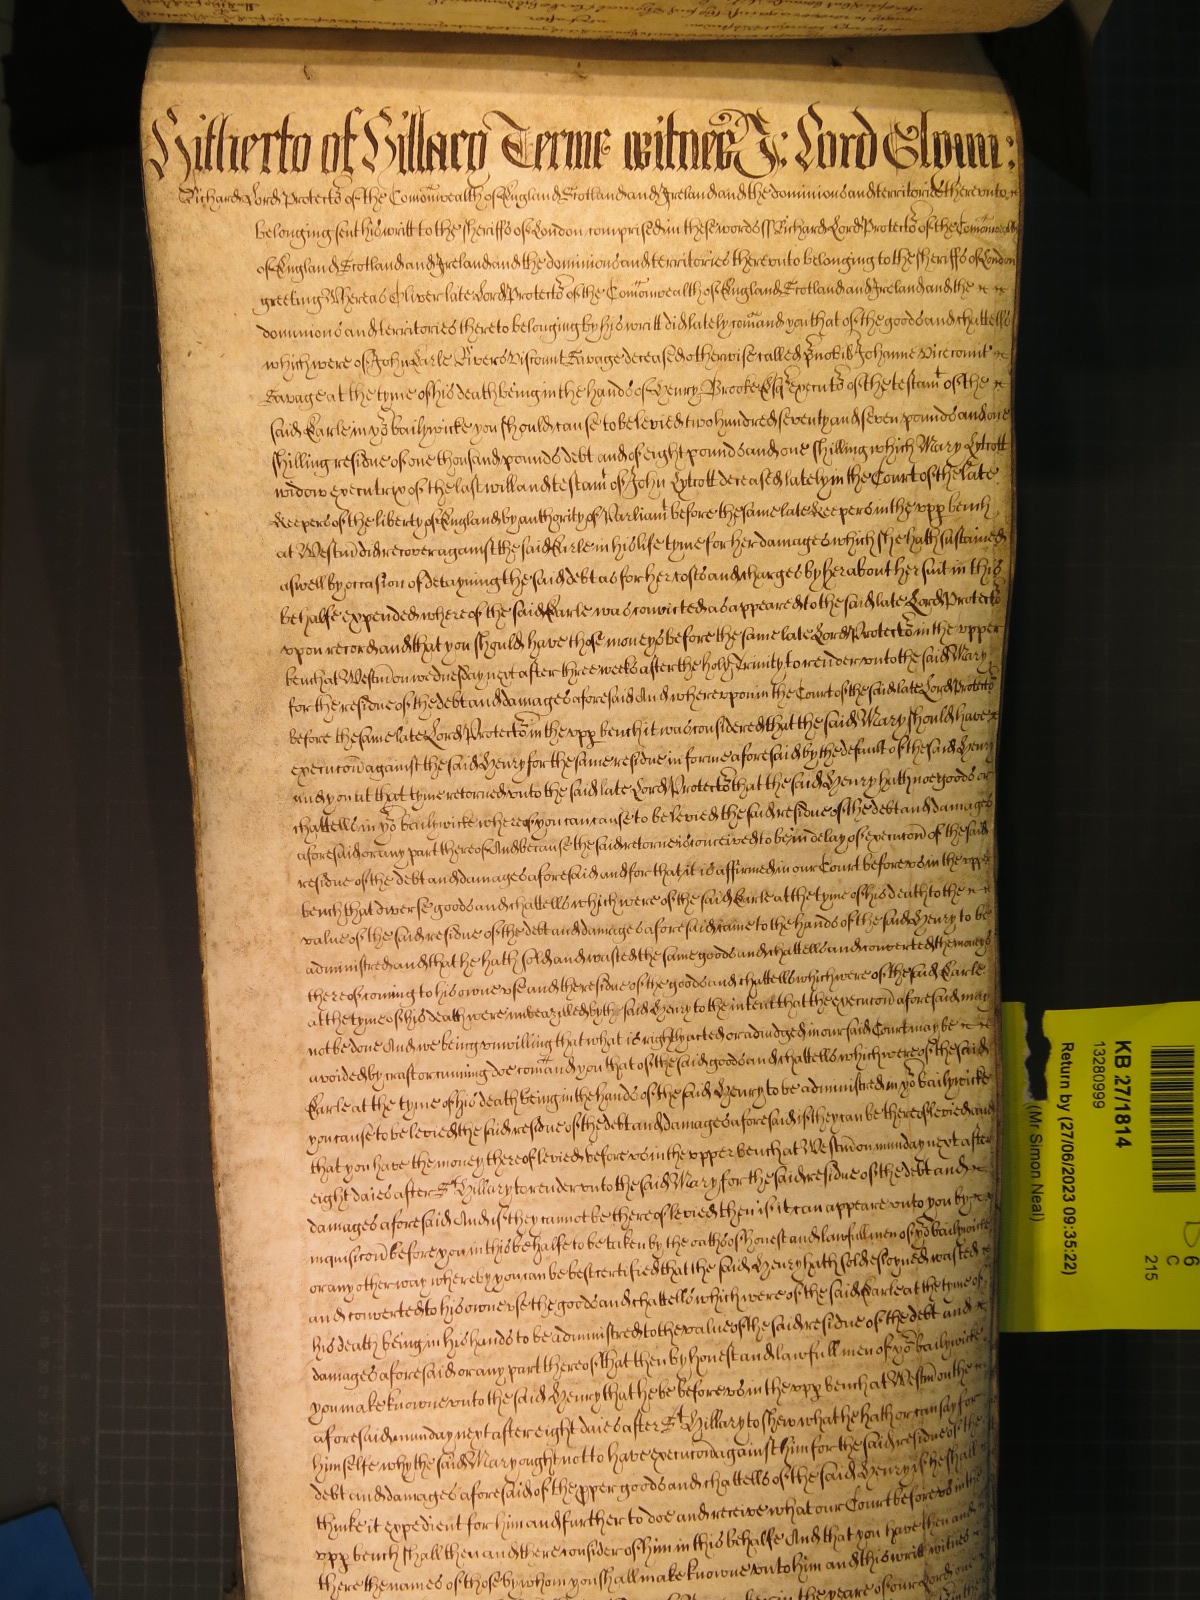 Hitherto of Hillary Terme witnes J: Lord Glynn:
Richard Lord Protector of the Comonwealth of England Scotland and Ireland and the dominions and territories therevnto
belonging sent his writt to the sheriffs of London comprised in these words ss Richard Lord Protector of the Comonwealth
of England Scotland and Ireland and the dominions and territories therevnto belonging to the sheriffs of London
greeting Whereas Oliver late Lord Protector of the Comonwealth of England Scotland and Ireland and the
dominions and territories thereto belonging by his writt did lately comand you that of the goods and chattells
which were of John Earle Rivers Viscount Savage deceased otherwise called Johanne Vicecomit
Savage at the tyme of his death being in the hands of Henry Brooke Esqr executor of the testamt of the
said Earle in yor bailywicke you should cause to be levied two hundred seventy and seven pounds and one
shilling residue of one thousand pounds debt and of eight pounds and one shilling which Mary Lytcott
widow executrix of the last will and testamt of John Lytcott deceased lately in the Court of the late
Keepers of the liberty of England by authority of Parliamt before the same late Keepers in the vpp bench
at Westm did recover against the said Earle in his life tyme for her damages which she hath sustained
aswell by occasion of detayning the said debt as for her costs and charges by her about her suit in this
behalfe expended whereof the said Earle was convicted as appeared to the said late Lord Protector
vpon record and that you should have those moneys before the same late Lord Protector in the vpper
bench at Westm on wednesday next after three weeks after the holy Trinity to render vnto the said Mary
for the residue of the debt and damages aforesaid And wherevpon in the Court of the said late Lord Protector
before the same late Lord Protector in the vpp bench it was considered that the said Mary should have
execucon against the said Henry for the same residue in forme aforesaid by the default of the said Henry
and you at that tyme retorned vnto the said late Lord Protector that the said Henry hath noe goods or
chattells in yor bailywicke whereof you can cause to be levied the said residue of the debt and damages
aforesaid or any part thereof And because the said retorne is conceived to be in delay of execucon of the said
residue of the debt and damages aforesaid and for that it is affirmed in our Court before vs in the vpper
bench that diverse goods and chattells which were of the said Earle at the tyme of his death to the
value of the said residue of the debt and damages aforesaid came to the hands of the said Henry to be
administred and that he hath sold and wasted the same goods and chattells and converted the moneys
thereof coming to his owne vse and the residue of the goods and chattells which were of the said Earle
at the tyme of his death were imbeazilled by the said Henry to the intent that the execucon aforesaid may
not be done And we being vnwilling that what is rightly acted or adiudged in our said Court may be
avoided by craft or cunning doe comand you that of the said goods and chattells which were of the said
Earle at the tyme of his death being in the hands of the said Henry to be administred in yor bailywicke
you cause to be levied the said residue of the debt and damages aforesaid if they can be thereof levied and
that you have the money thereof levied before vs in the vpper bench at Westm on munday next after
eight daies after St Hillary to render vnto the said Mary for the said residue of the debt and
damages aforesaid And if they cannot be thereof levied then if it can appeare vnto you by
inquisicon before you in this behalfe to be taken by the oaths of honest and lawfull men of yor bailywicke
or any other way whereby you can be best certified that the said Henry hath sold esloyned wasted
and converted to his owne vse the goods and chattells which were of the said Earle at the tyme of
his death being in his hands to be administred to the value of the said residue of the debt and
damages aforesaid or any part thereof that then by honest and lawfull men of yor bailywicke
you make knowne vnto the said Henry that he be before vs in the vpp bench at Westm on the
aforesaid munday next after eight daies after St Hillary to shew what he hath or can say for
himselfe why the said Mary ought not to have execucon against him for the said residue of the
debt and damages aforesaid of the pper goods and chattells of the said Henry if he shall
thinke it expedient for him and further to doe and receive what our Court before vs in the
vpp bench shall then and there consider of him in this behalfe And that you have then and
there the names of those by whom you shall make knowne vnto him and this writt witnes
in the yeare of our Lord one
KB 27/1814
13280999
Return by (27/06/2023 09:35:22)
(Mr Simon Neal)
6
C
215